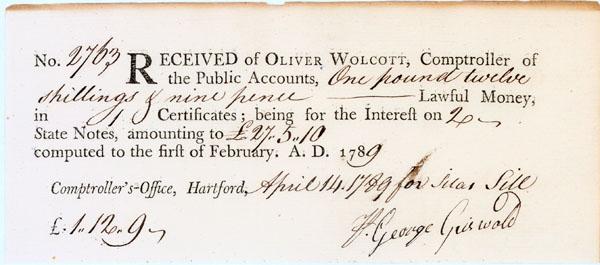 No. 2763 RECEIVED of OLIVER WOLCOTT, Comptroller of
the Public Accounts, One pound twelve
shillings & nine pence Lawful Money,
in 1 Certificates; being for the Interest on 2
State Notes, amounting to £27..5..10
computed to the first of February. A. D. 1789
Comptroller's-Office, Hartford, April 14. 1789 for Silas Sill
£. 1..12..9 George Griswold